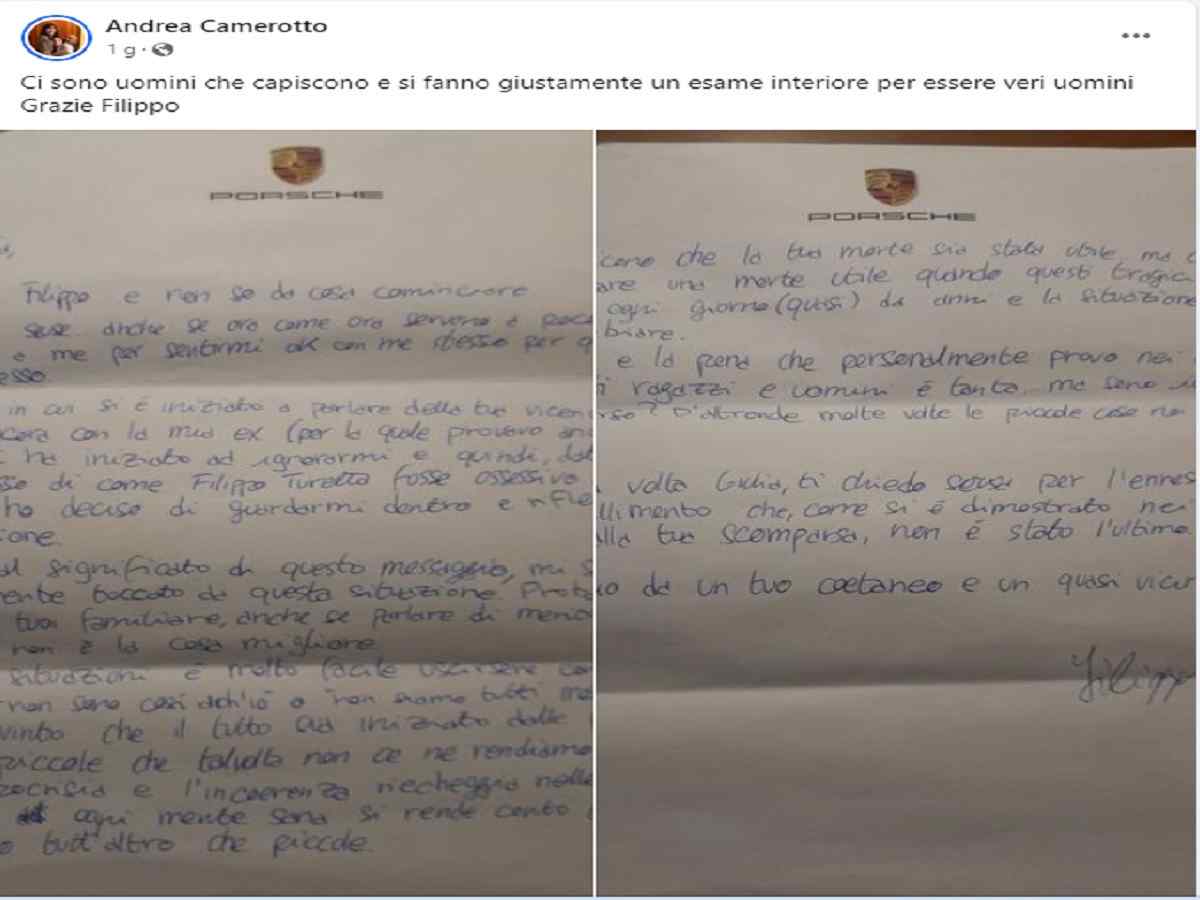 Andrea Camerotto
1 g
Ci sono uomini che capiscono e si fanno giustamente un esame interiore per essere veri uomini
Grazie Filippo
PORSCHE
Filippo e non so da cosa cominciare
scuse anche se ora come ora servono a
a me per sentirmi ok con me stesso per
esso.
in cui si è iniziato a parlare della tua
con la mia ex (per la quale provavo
ha iniziato ad ignorarmi e quindi,
di come Filippo Turetta fosse ossessivo
ho deciso di guardarmi dentro e
one.
significato di questo messaggio, mi
toccato da questa situazione.
tuoi familiare, anche se parlare di
non è la cosa migliore
situazioni è molto facile uscirsene
non sono così anch'io o non siamo tutti
che il tutto sia iniziato dalle
piccole che talvolta non ce ne rendiamo
e l'incoerenza riecheggia nelle
ogni mente sana si rende conto
tutt'altro che piccole.
PORSCHE
che la tua morte sia stata utile, ma
una morte utile quando questi
ogni giorno (quasi) da anni e la situazione
biare.
e la pena che personalmente provo nei
ragazzi e uomini è tanta, ma sono
D'altronde molte volte le piccole cose
volta Giulia, ti chiedo scusa per l'ennes
llimento che, come si è dimostrato nei
alla tua scomparsa, non è stato l'ultimo.
da un tuo coetaneo e un quasi
Filippo